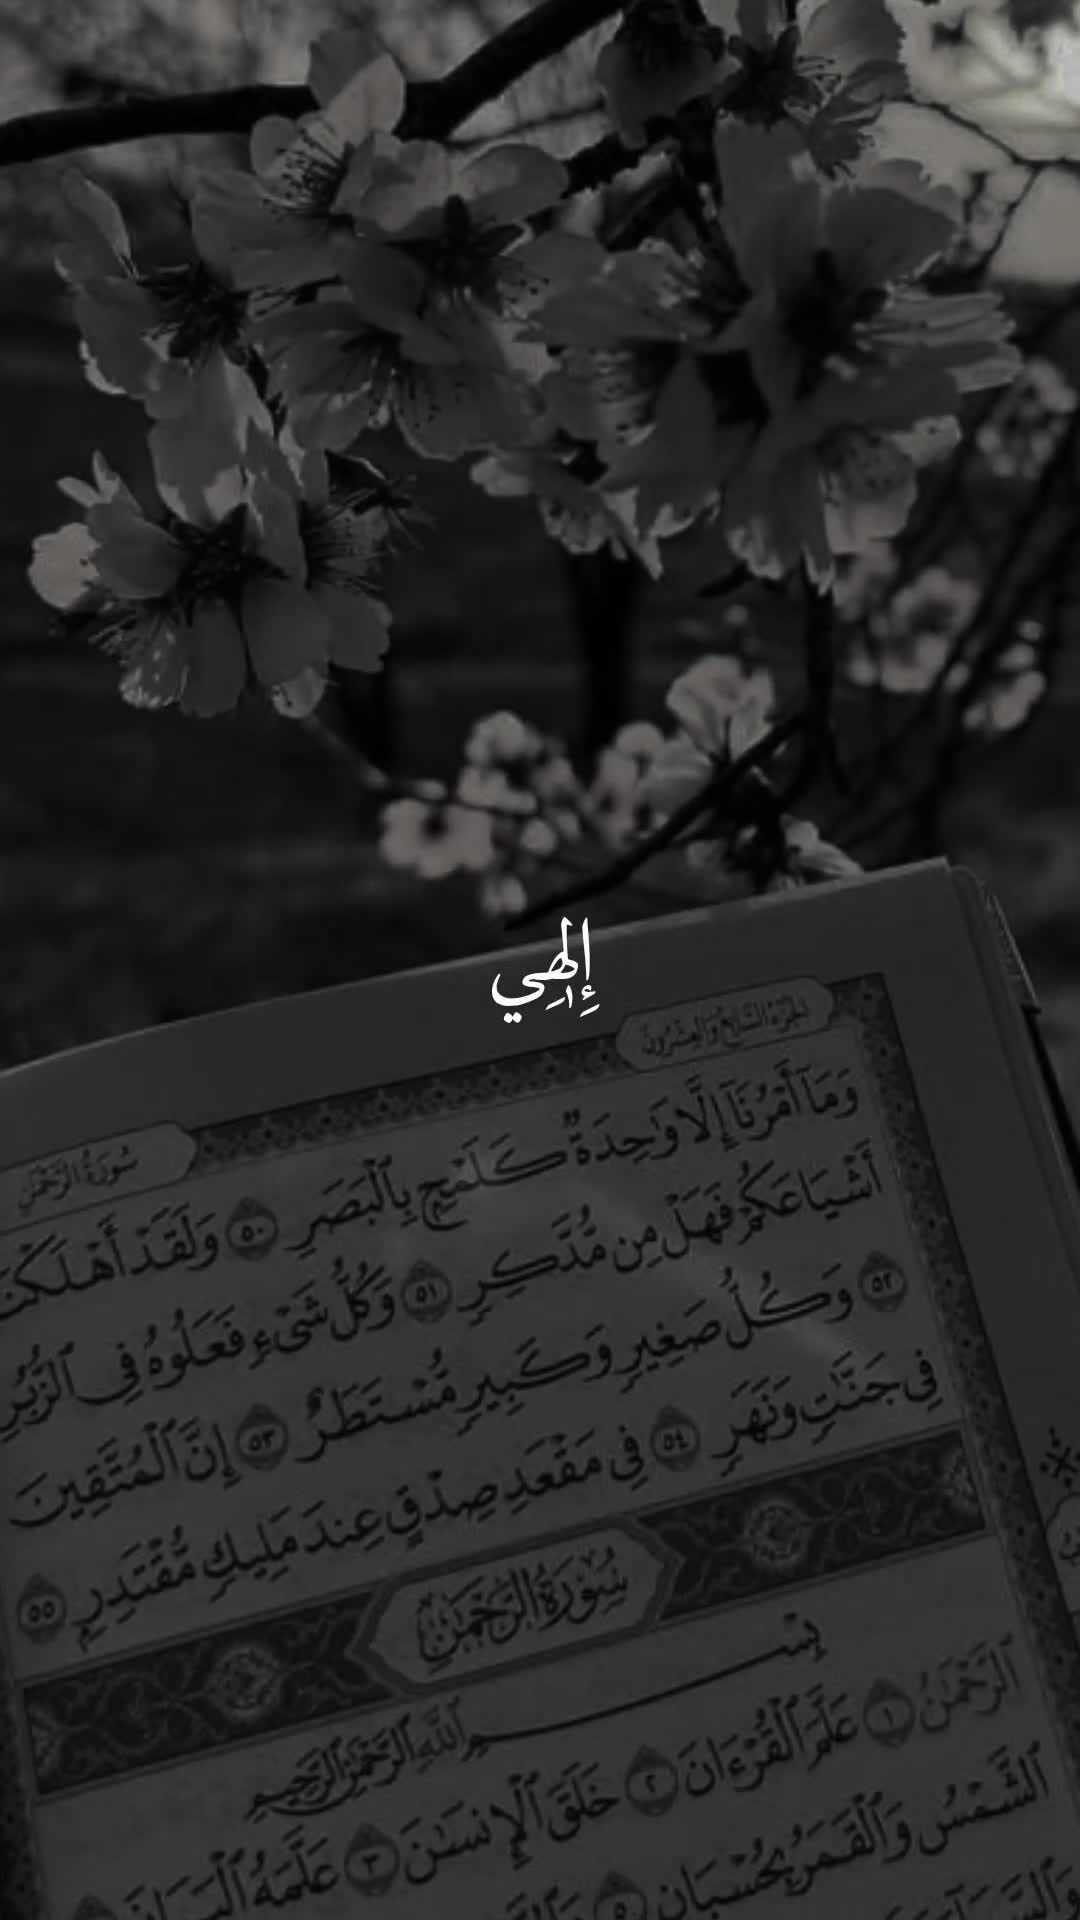 إِلٰهِي
الجُزْءُ السَّابِعُ وَالعِشْرُونَ
سُورَةُ الرَّحْمٰن
وَمَآ أَمْرُنَآ إِلَّا وَٰحِدَةٌ كَلَمْحٍۭ بِٱلْبَصَرِ ٥٠ وَلَقَدْ أَهْلَكْنَآ
أَشْيَاعَكُمْ فَهَلْ مِن مُّدَّكِرٍ ٥١ وَكُلُّ شَىْءٍ فَعَلُوهُ فِى ٱلزُّبُرِ
٥٢ وَكُلُّ صَغِيرٍ وَكَبِيرٍ مُّسْتَطَرٌ ٥٣ إِنَّ ٱلْمُتَّقِينَ
فِى جَنَّٰتٍ وَنَهَرٍ ٥٤ فِى مَقْعَدِ صِدْقٍ عِندَ مَلِيكٍ مُّقْتَدِرٍۭ ٥٥
سُورَةُ الرَّحْمٰن
بِسْمِ ٱللَّهِ ٱلرَّحْمَٰنِ ٱلرَّحِيمِ
ٱلرَّحْمَٰنُ ١ عَلَّمَ ٱلْقُرْءَانَ ٢ خَلَقَ ٱلْإِنسَٰنَ ٣ عَلَّمَهُ ٱلْبَيَانَ
ٱلشَّمْسُ وَٱلْقَمَرُ بِحُسْبَانٍ ٥